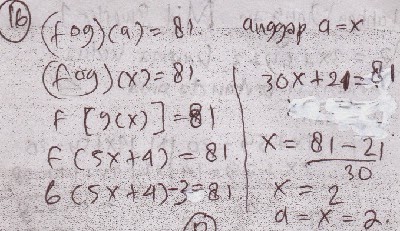 16
(fog)(a) = 81
(fog)(x) = 81
f[g(x)] = 81
f(5x+4) = 81.
6(5x+4)-3=81.
anggap a=x
30x+21=81
x = 81-21
30
x = 2
a = x = 2.